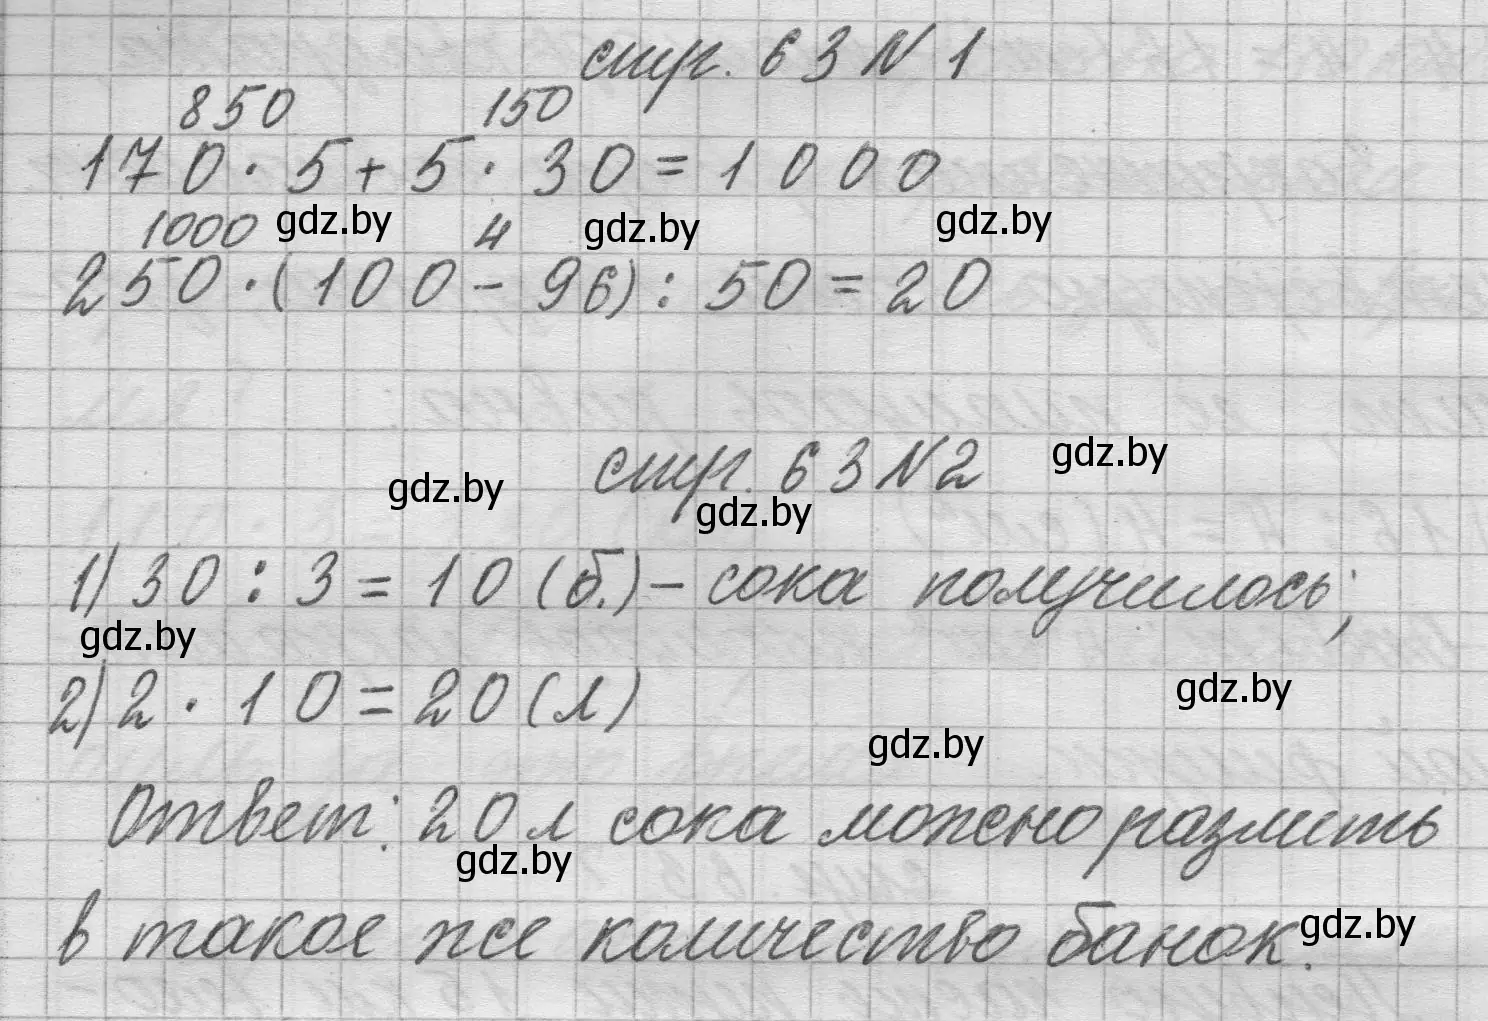 стр. 63 N 1
850 150
170 · 5 + 5 · 30 = 1000
1000 gdz.by 4 gdz.by gdz.by
250 · (100 - 96) : 50 = 20
стр. 63 N 2 gdz.by
gdz.by gdz.by
1) 30 : 3 = 10 (б.) - сока получилось;
gdz.by
2) 2 · 10 = 20 (л) gdz.by
gdz.by
Ответ: 20 л сока можно разлить
gdz.by
в такое же количество банок. gdz.by